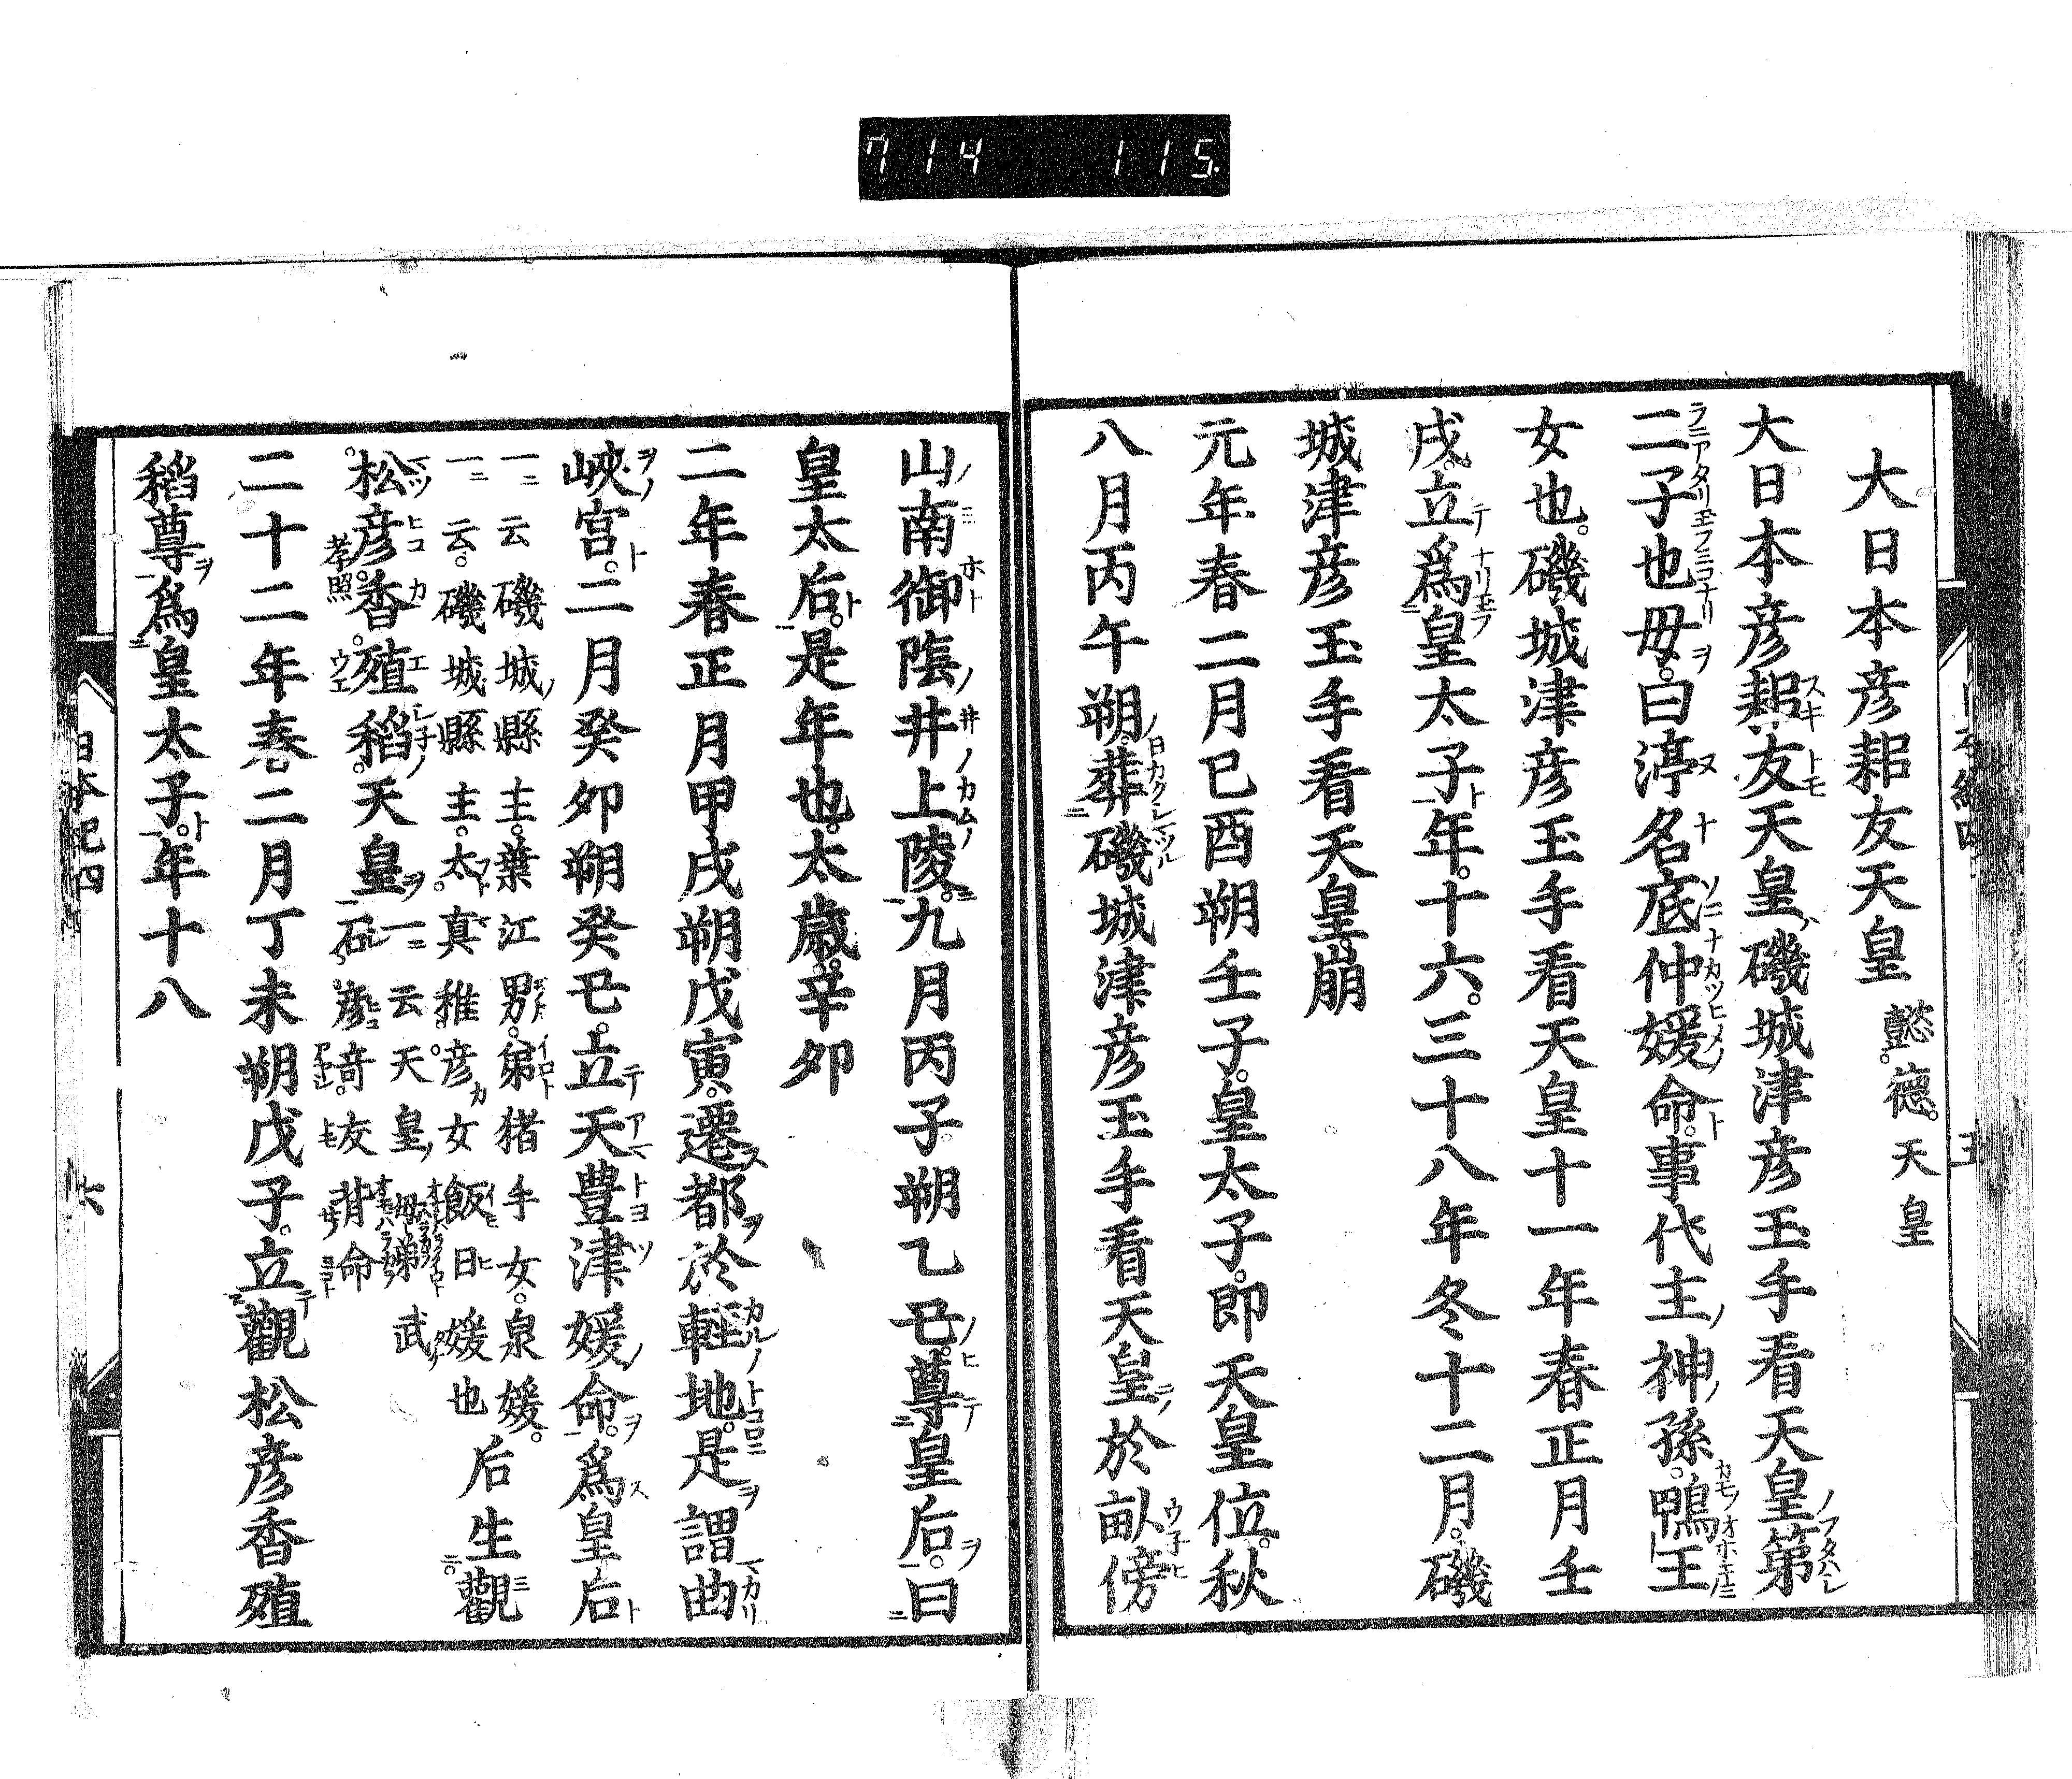 714 115
大日本彦耜友天皇 懿德天皇
大日本彦耜友天皇磯城津彦玉手看天皇第
二子也母曰渟名底仲媛命事代主神孫鴨王
女也磯城津彦玉手看天皇十一年春正月壬
戌立爲皇太子年十六三十八年冬十二月磯
城津彦玉手看天皇崩
元年春二月己酉朔壬子皇太子即天皇位秋
八月丙午朔葬磯城津彦玉手看天皇於畝傍
山南御陰井上陵九月丙子朔乙丑尊皇后曰
皇太后是年也太歳辛夘
二年春正月甲戌朔戊寅遷都於輕地是謂曲
峽宮二月癸夘朔癸丑立天豊津媛命爲皇后
一云磯城縣主葉江男弟猪手女泉媛
一云磯城縣主太真稚彦女飯日媛也
后生觀
松彦香殖稻天皇
孝照
一云天皇母弟武
石彦竒友背命
二十二年春二月丁未朔戊子立觀松彦香殖
稻尊爲皇太子年十八
日本紀四
六